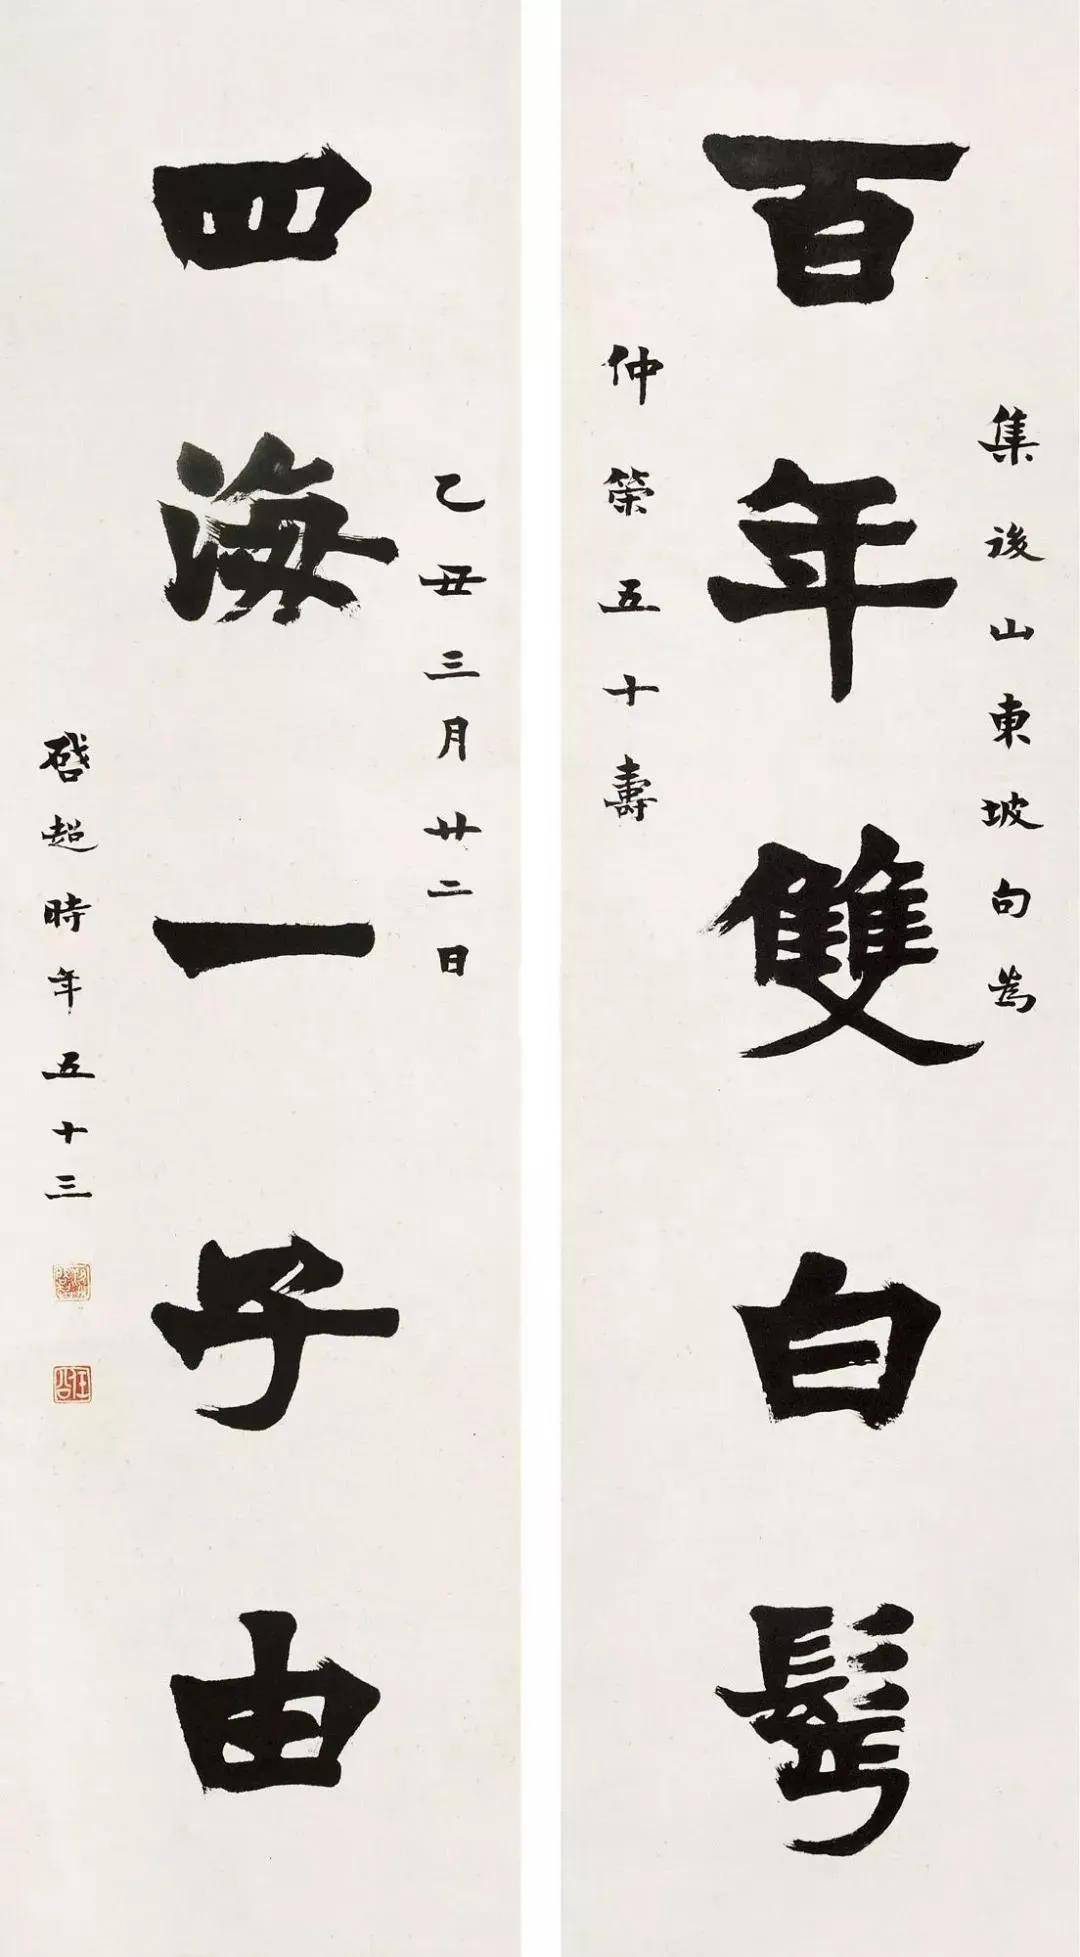 百年雙白鬢
集後山東坡句為
仲榮五十壽
四海一子由
乙丑三月廿二日
啓超時年五十三
任公